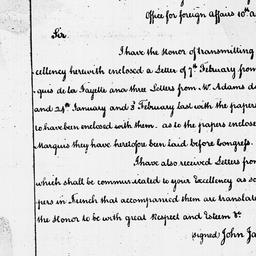 Office for foreign Affairs 10th a
Sir
I have the Honor of transmitting
cellency herewith enclosed a Letter of 7th February from
quis de la Fayette and three Letters from Mr Adams da
and 24th January and 3d February last with the papers
to have been enclosed with them. as to the papers enclose
Marquis they have heretofore been laid before Congress.
I have also received Letters from
which shall be communicated to your Excellency as so
pers in French that accompanied them are translate
the Honor to be with great Respect and Esteem &c.
signed John Ja